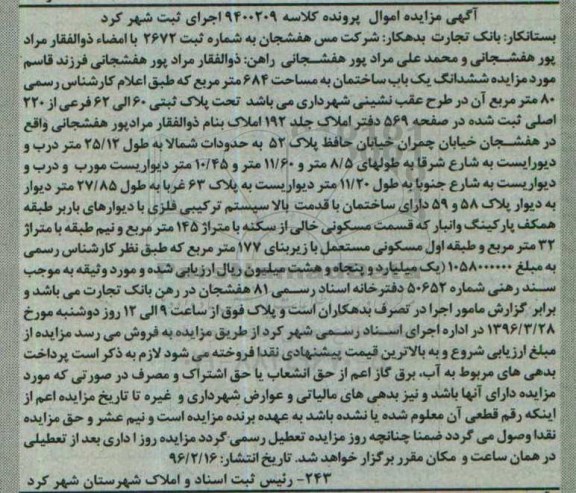 آگهی مزایده اموال پرونده کلاسه ۹۴۰۰۲۰۹ اجرای ثبت شهر کرد
بستانکار: بانک تجارت بدهکار: شرکت مس هفشجان به شماره ثبت ۲۶۷۲ با امضاء ذوالفقار مراد
پور هفشجانی و محمد علی مراد پور هفشجانی راهن: ذوالفقار مراد پور هفشجانی فرزند قاسم
مورد مزایده ششدانگ یک باب ساختمان به مساحت ۶۸۴ متر مربع که طبق اعلام کارشناس رسمی
۸۰ متر مربع آن در طرح عقب نشینی شهرداری می باشد تحت پلاک ثبتی ۶۰ الی ۶۲ فرعی از ۲۲۰
اصلی ثبت شده در صفحه ۵۶۹ دفتر املاک جلد ۱۹۲ املاک بنام ذوالفقار مرادپور هفشجانی واقع
در هفشجان خیابان چمران خیابان حافظ پلاک ۵۲ به حدودات شمالا به طول ۲۵/۱۲ متر درب و
دیورایست به شارع شرقا به طولهای ۸/۵ متر و ۱۱/۶۰ متر و ۱۰/۴۵ متر دیواریست مورب و درب و
دیواریست به شارع جنوبا به طول ۱۱/۲۰ متر دیواریست به پلاک ۶۳ غربا به طول ۲۷/۸۵ متر دیوار
به دیوار پلاک ۵۸ و ۵۹ دارای ساختمان با قدمت بالا سیستم ترکیبی فلزی با دیوارهای باربر طبقه
همکف پارکینگ وانبار که قسمت مسکونی خالی از سکنه با متراژ ۱۴۵ متر مربع و نیم طبقه با متراژ
۳۲ متر مربع و طبقه اول مسکونی مستعمل با زیربنای ۱۷۷ متر مربع که طبق نظر کارشناس رسمی
به مبلغ ۱۰۵۸۰۰۰۰۰۰ (یک میلیارد و پنجاه و هشت میلیون ریال ارزیابی شده و مورد وثیقه به موجب
سند رهنی شماره ۵۰۶۵۲ دفترخانه اسناد رسمی ۸۱ هفشجان در رهن بانک تجارت می باشد و
برابر گزارش مامور اجرا در تصرف بدهکاران است و پلاک فوق از ساعت ۹ الی ۱۲ روز دوشنبه مورخ
۱۳۹۶/۳/۲۸ در اداره اجرای اسناد رسمی شهر کرد از طریق مزایده به فروش می رسد مزایده از
مبلغ ارزیابی شروع و به بالاترین قیمت پیشنهادی نقدا فروخته می شود لازم به ذکر است پرداخت
بدهی های مربوط به آب، برق گاز اعم از حق انشعاب یا حق اشتراک و مصرف در صورتی که مورد
مزایده دارای آنها باشد و نیز بدهی های مالیاتی و عوارض شهرداری و غیره تا تاریخ مزایده اعم از
اینکه رقم قطعی آن معلوم شده یا نشده باشد به عهده برنده مزایده است و نیم عشر و حق مزایده
نقدا وصول می گردد ضمنا چنانچه روز مزایده تعطیل رسمی گردد مزایده روز ا داری بعد از تعطیلی
در همان ساعت و مکان مقرر برگزار خواهد شد. تاریخ انتشار: ۹۶/۲/۱۶
۲۴۳- رئیس ثبت اسناد و املاک شهرستان شهر کرد